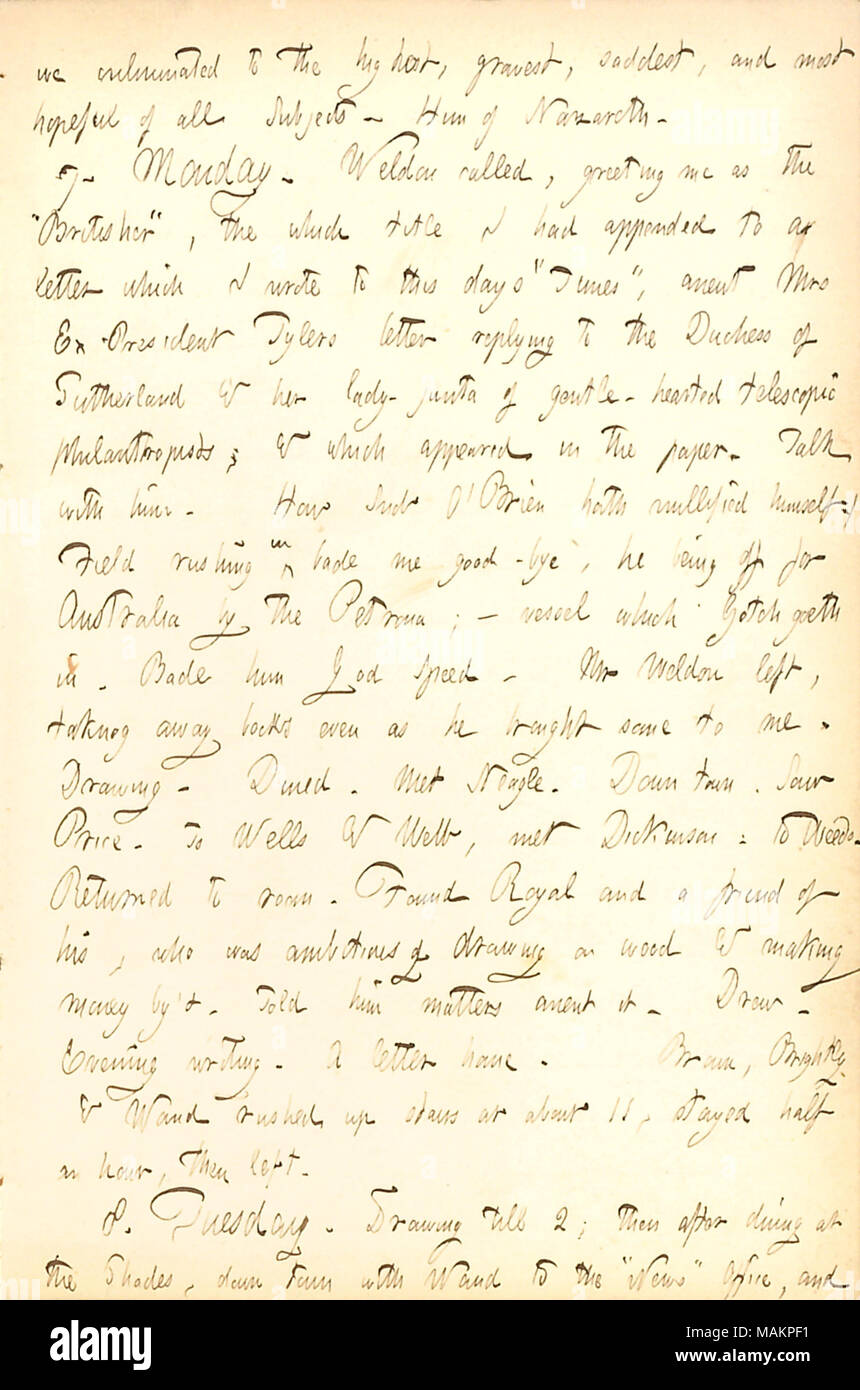 we culminated to the highest, gravest, saddest, and most
hopeful of all Subjects — Him of Nazareth —
7. Monday. Weldon called, greeting me as the
"Britisher", the which title I had appended to a
letter which I wrote to this day's "Times", anent Mrs
Ex-President Tylers letter replying to the Duchess of
Sutherland & her lady-junta of gentle-hearted telescopic
philanthropists; & which appeared in the paper. Talk
with him. How Smith O'Brien hath nullified himself!
Field rushing in, bade me good-bye, he being off for
Australia by the Petrona; — vessel which Gotch goeth
in. Bade him God speed — Mr Weldon left,
taking away books even as he brought some to me.
Drawing — Dined. Met Neagle. Down town. Saw
Price. To Wells & Webb, met Dickinson: to Weeds.
Returned to room. Found Royal and a friend of
his, who was ambitious of drawing on wood & making
money by't. Told him matters anent it — Drew —
Evening writing. A letter home. Brown, Brightly
& Waud rushed up stairs at about 11, stayed half
an hour, then left.
8. Tuesday. Drawing till 2; then after dining at
the Shades, down town with Waud to the "News" Office, and
alamy
Image ID: MAKPF1
www.alamy.com